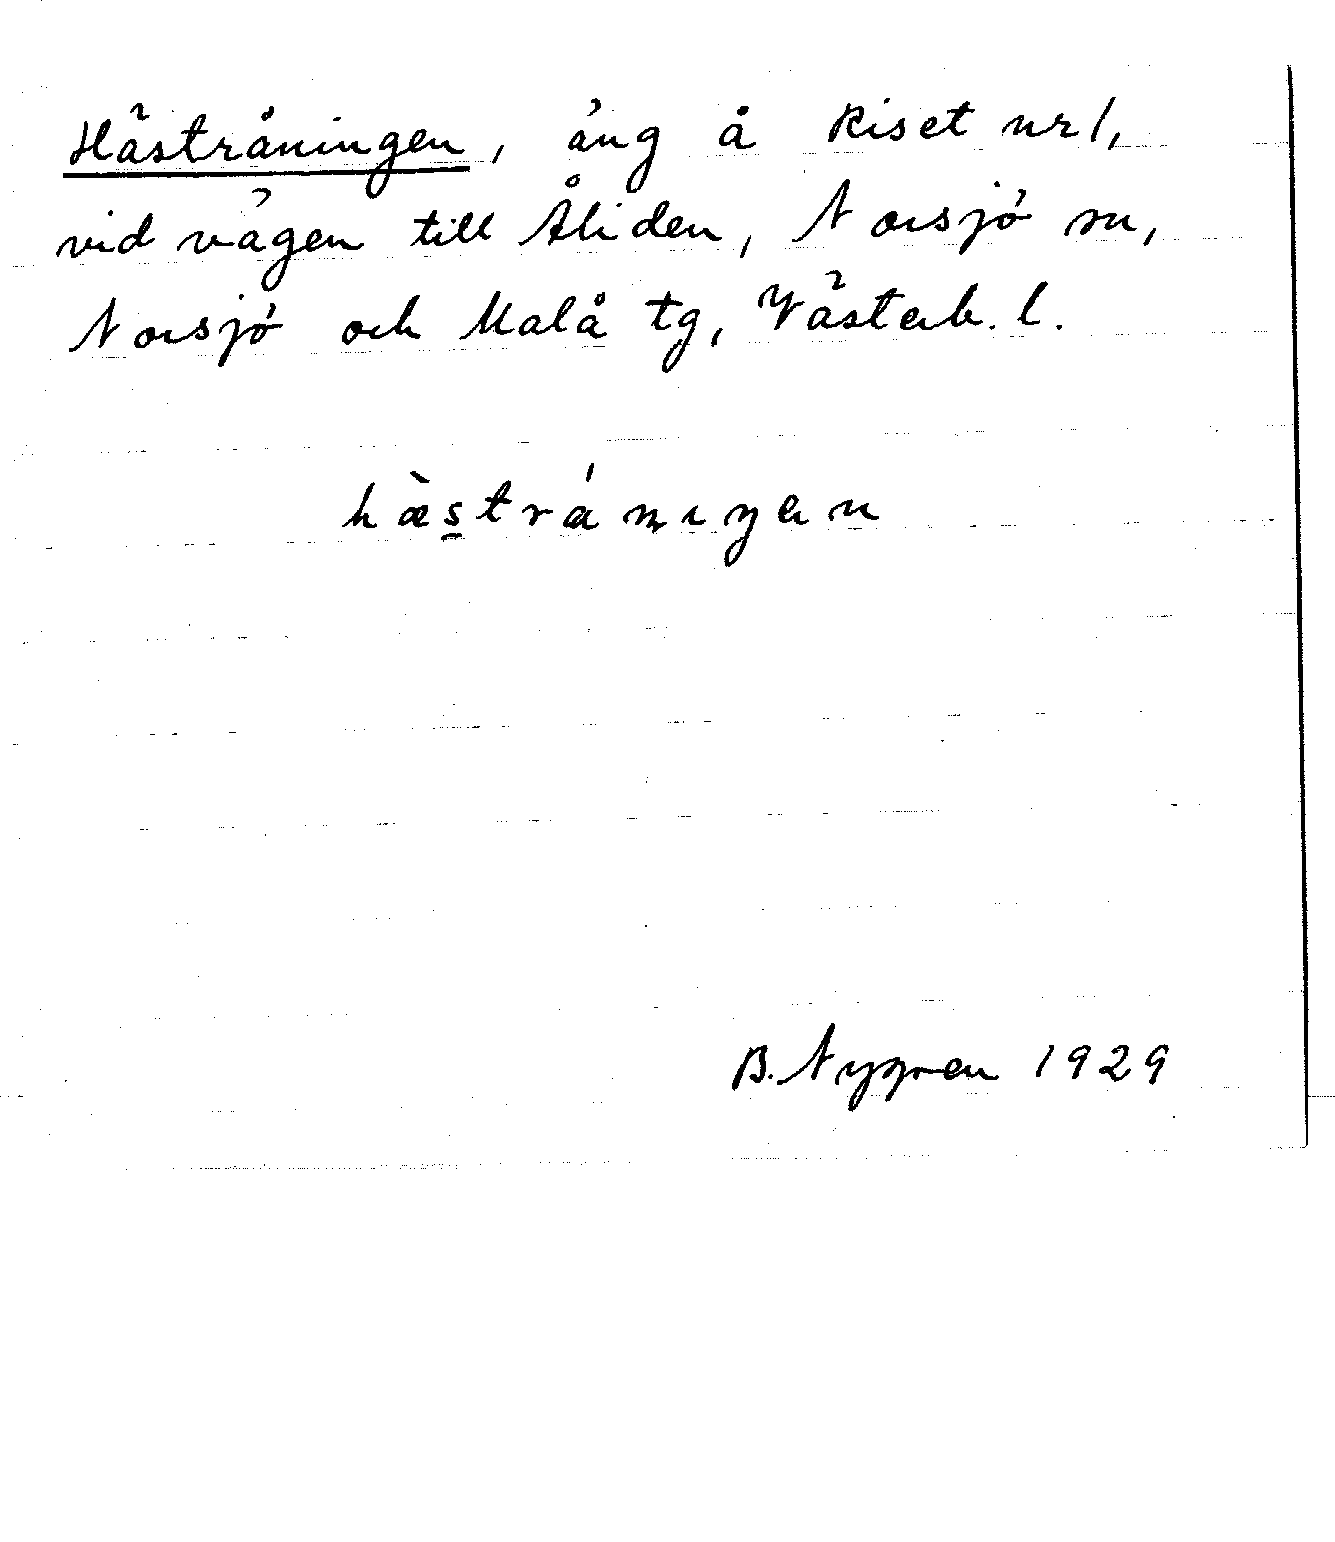 Hästråningen, äng å Riset nr 1,
vid vägen till Åliden, Norsjö sn,
Norsjö och Malå tg, Västerb. l.
hæ̀stránıŋen
B. Nygren 1929